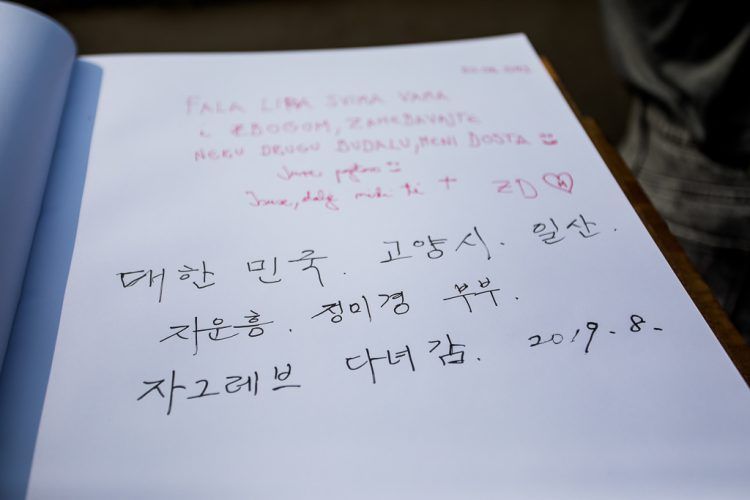 FALA LIPA SVIMA VAMA
i ZBOGOM, ZAMEBAVAJTE
NEKU DRUGU BUDALU, MENI DOSTA
+ ZD
대한 민국. 고양시. 일산.
자운흥. 정미경 부부.
자그레브 다녀감. 2019. 8.